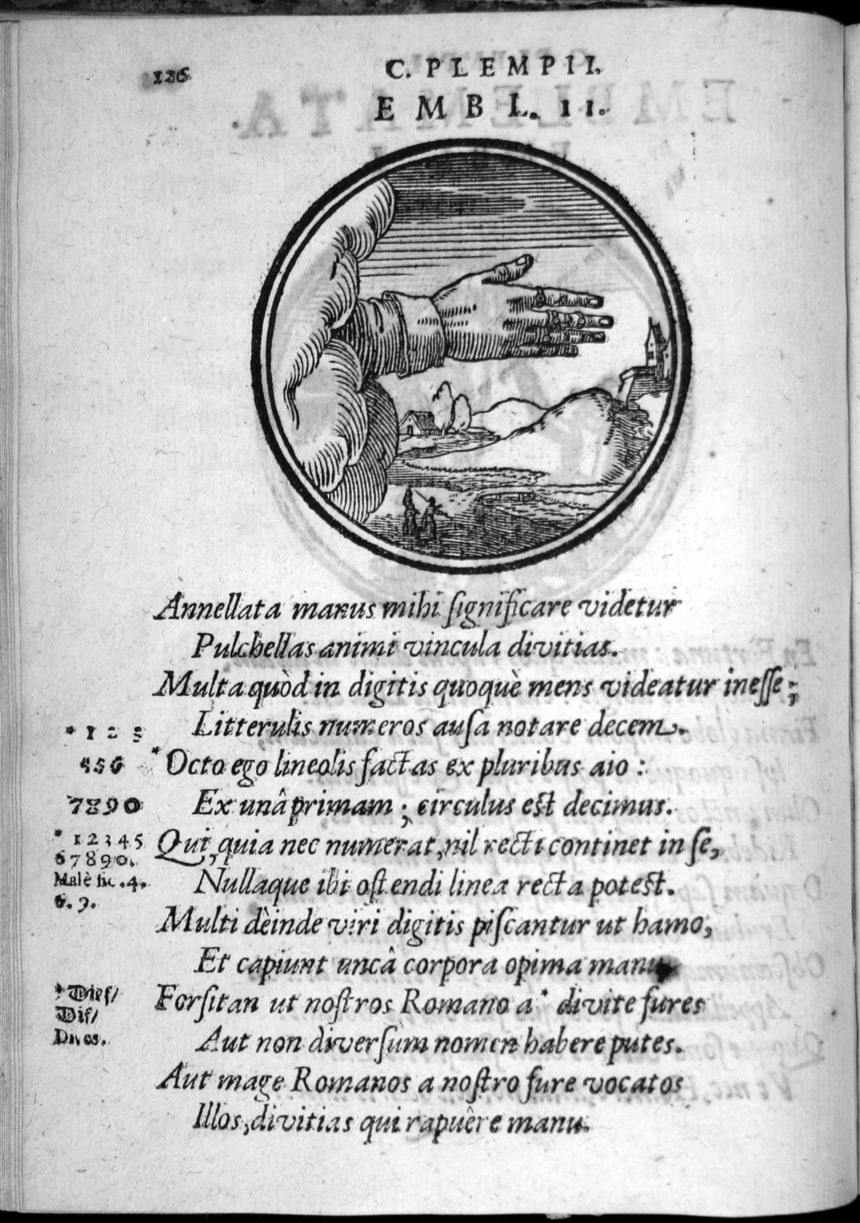 126
C. PLEMPII.
EMBL. II.
Annellata manus mihi ſignificare videtur
Pulchellas animi vincula divitias.
Multa quòd in digitis quoquè mens videatur ineſſe;
Litterulis numeros auſa notare decem.
* 1 2 3
456
7890
*Octo ego lineolis factas ex pluribus aio:
Ex unâ primam; circulus eſt decimus.
* 12345
67890.
Malè ſic. 4.
6. 9.
Qui, quia nec numerat, nil recti continet in ſe,
Nullaque ibi oſtendi linea recta poteſt.
Multi dèinde viri digitis piſcantur ut hamo,
Et capiunt uncâ corpora opima manu.
* Dief/
Dif/
Dives.
Forſitan ut noſtros Romano a * divite fures
Aut non diverſum nomen habere putes.
Aut mage Romanos a noſtro fure vocatos
Illos, divitias qui rapuêre manu.